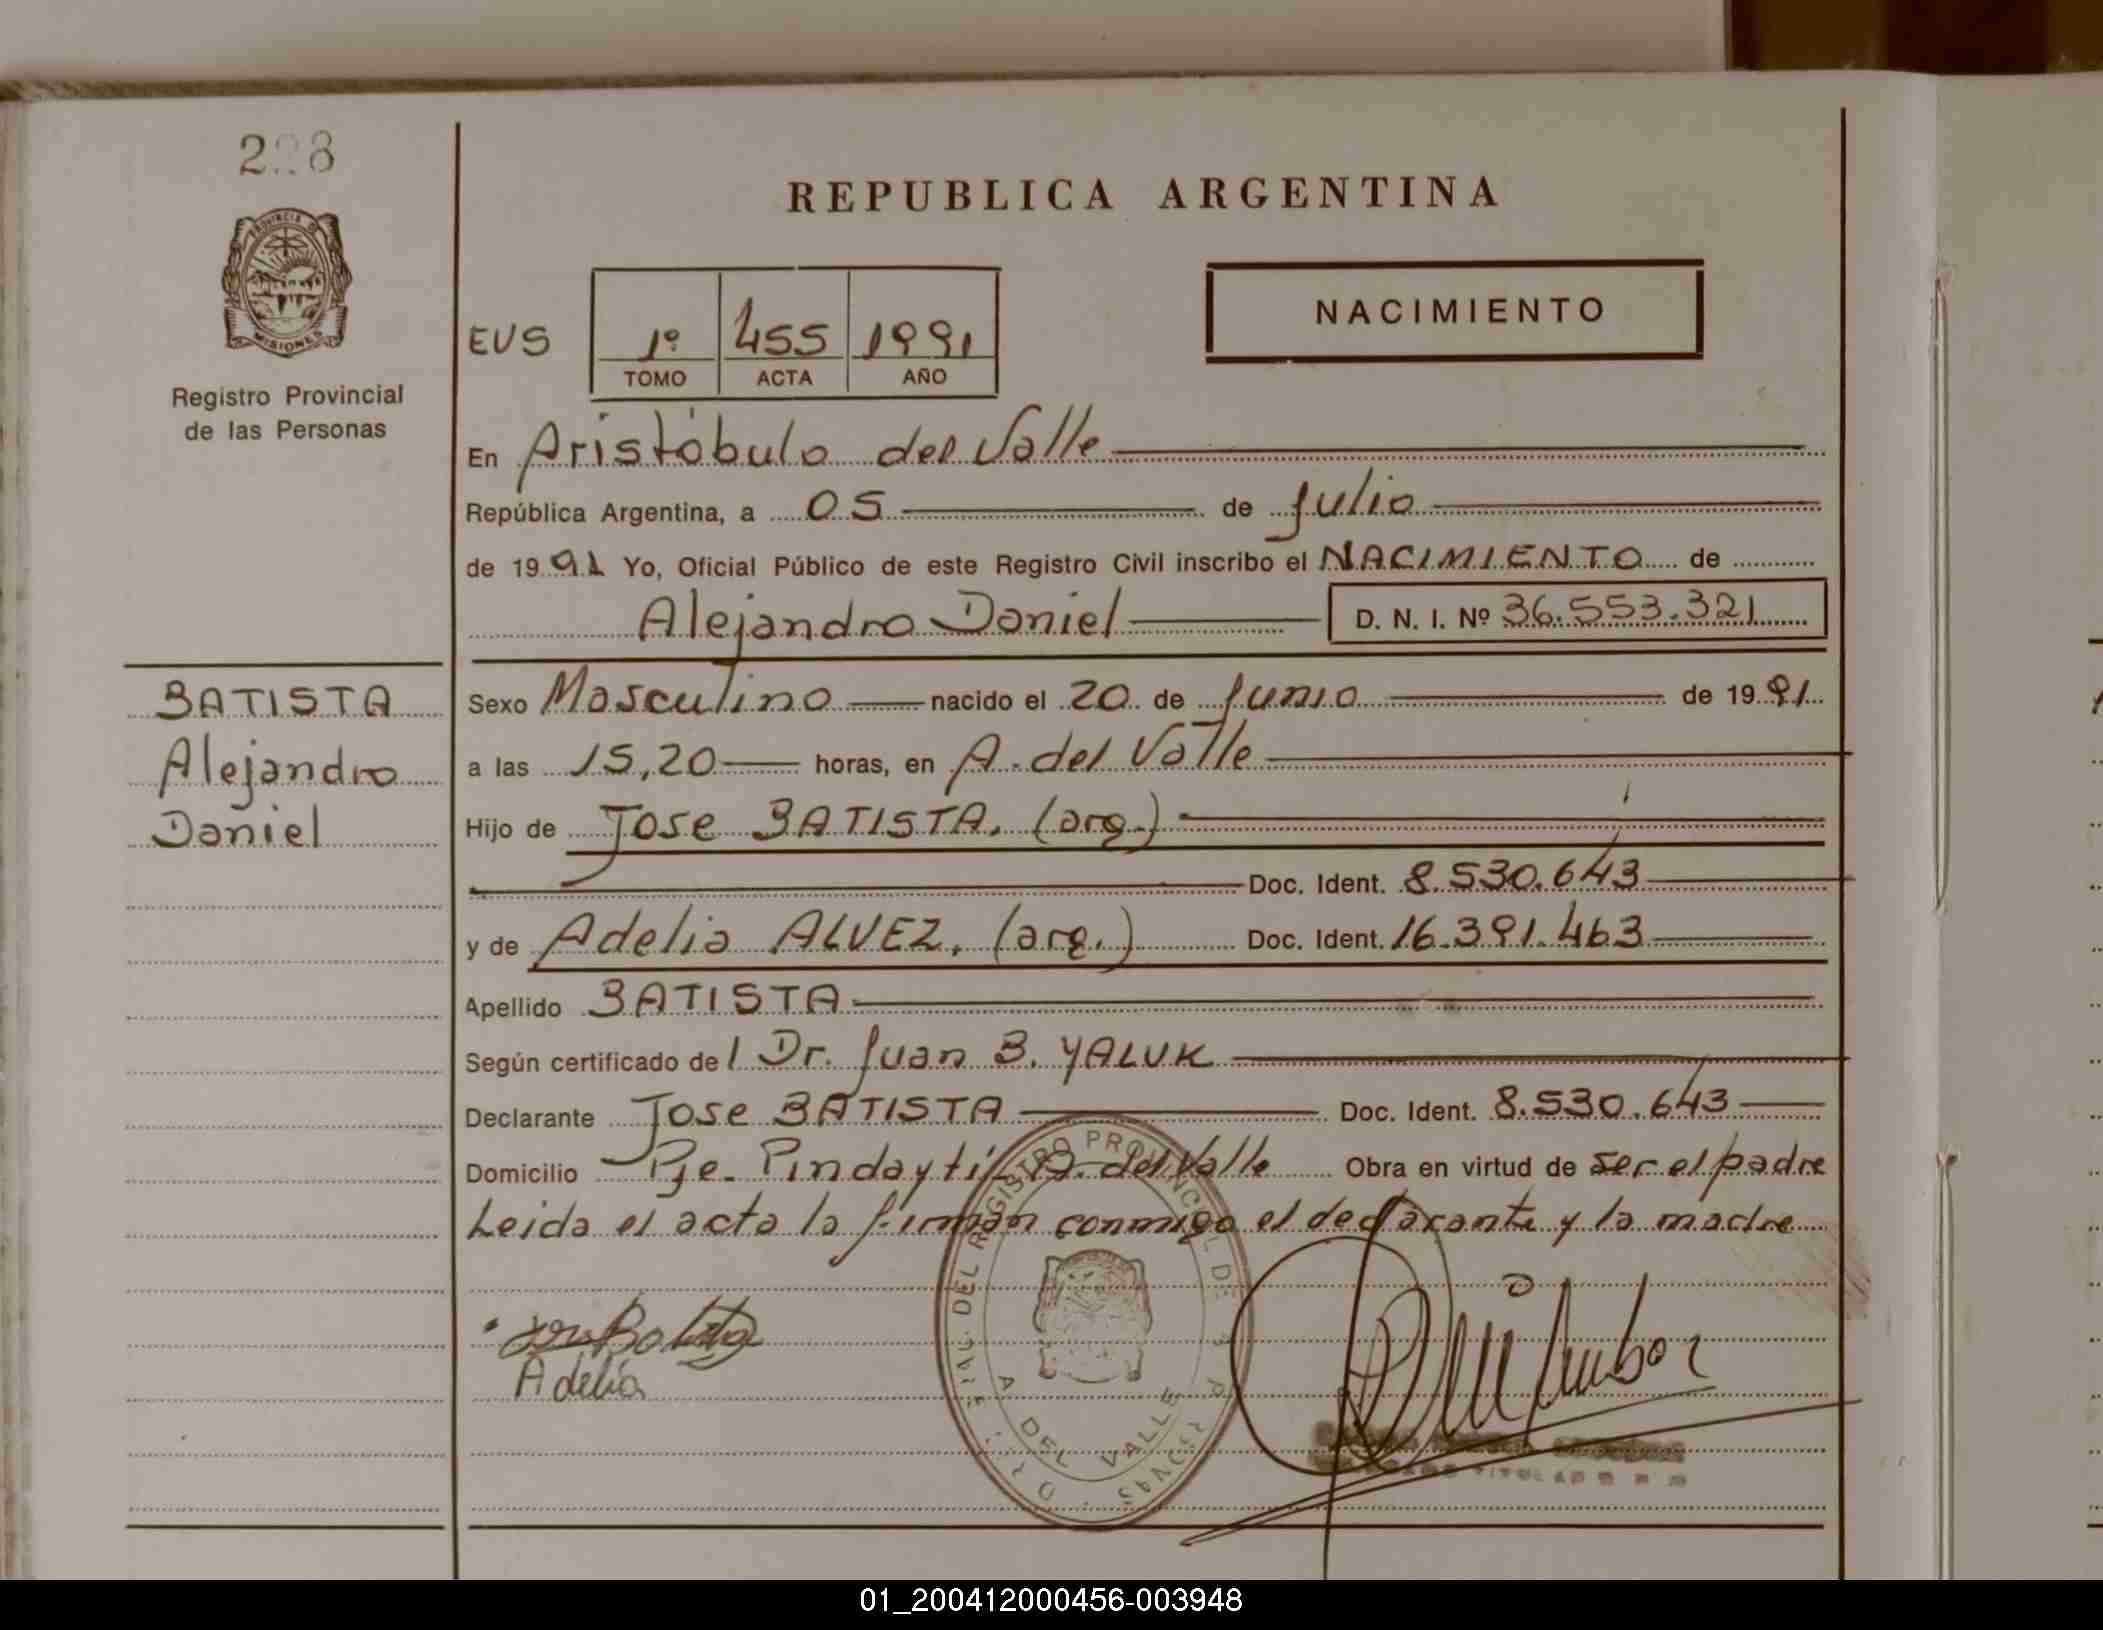 228
REPUBLICA ARGENTINA
PROVINCIA D
MISIONES
Registro Provincial
de las Personas
NACIMIENTO
EUS 1º 455 1991
TOMO ACTA AÑO
En Aristóbulo del Valle
República Argentina, a 05 de Julio
de 1991 Yo, Oficial Público de este Registro Civil inscribo el NACIMIENTO de
Alejandro Daniel D. N. I. Nº 36.553.321
BATISTA
Alejandro
Daniel
Sexo Masculino nacido el 20 de Junio de 1991
a las 15,20 horas, en A. del Valle
Hijo de Jose BATISTA. (arg.)
Doc. Ident. 8.530.643
y de Adelia ALVEZ. (arg.) Doc. Ident. 16.391.463
Apellido BATISTA
Según certificado del Dr. Juan B. YALUK
Declarante Jose BATISTA Doc. Ident. 8.530.643
Domicilio Pje. Pindaytí A. del Valle Obra en virtud de ser el padre
Leida el acta la firman conmigo el declarante y la madre
Adelia
DEL REGISTRO PROVINCIAL DE
A. DEL VALLE
01_200412000456-003948